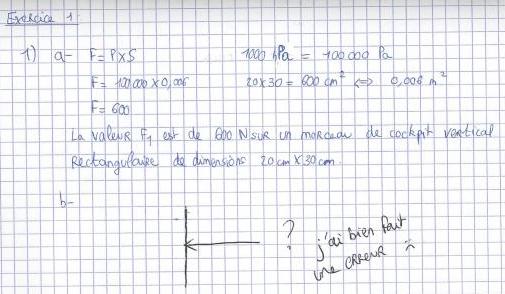 Exercice 1
1) a- F = P x S 1000 hPa = 100 000 Pa
F = 100 000 x 0,006 20 x 30 = 600 cm² <=> 0,006 m²
F = 600
La valeur F₁ est de 600 N sur un morceau de cockpit vertical
Rectangulaire de dimensions 20 cm x 30 cm.
b-
? j'ai bien fait
une erreur :